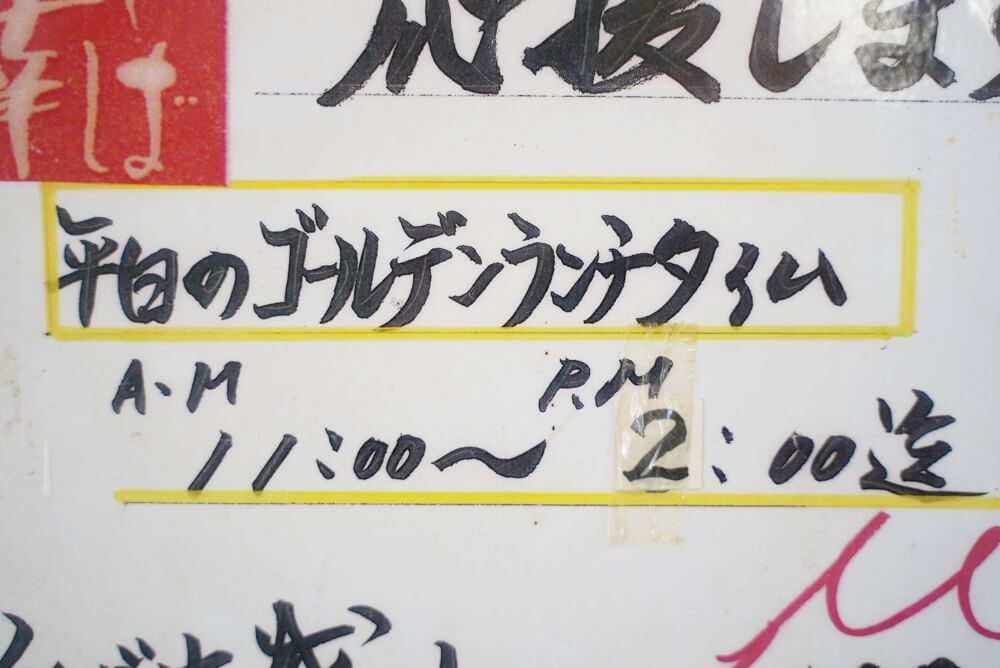 応援しま
ば
平日のゴールデンランチタイム
A.M P.M
11:00〜2:00迄